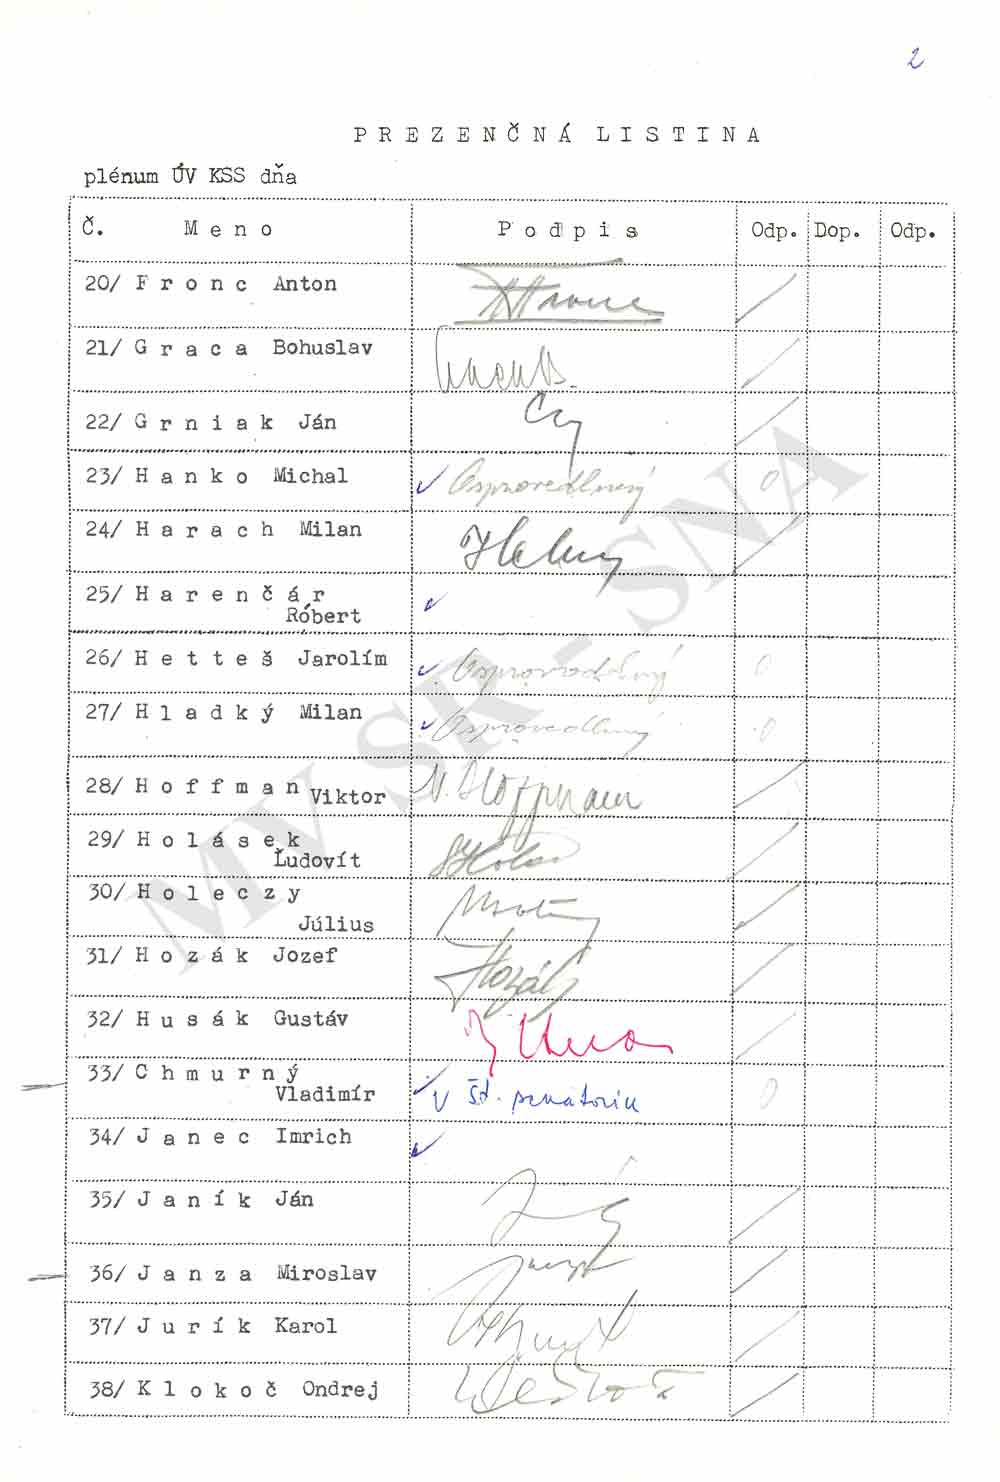 2
PREZENČNÁ LISTINA
plénum ÚV KSS dňa
Č. Meno Podpis Odp. Dop. Odp.
20/ Fronc Anton
21/ Graca Bohuslav
22/ Grniak Ján
23/ Hanko Michal Ospravedlnený 0
24/ Harach Milan
25/ Harenčár
Róbert
26/ Hetteš Jarolím Ospravedlnený 0
27/ Hladký Milan Ospravedlnený 0
28/ Hoffman Viktor V. Hoffman
29/ Holásek
Ľudovít
30/ Holeczy
Július
31/ Hozák Jozef Hozák
32/ Husák Gustáv
33/ Chmurný
Vladimír v št. sanatoriu 0
34/ Janec Imrich
35/ Janík Ján
36/ Janza Miroslav
37/ Jurík Karol
38/ Klokoč Ondrej
MV SR - SNA